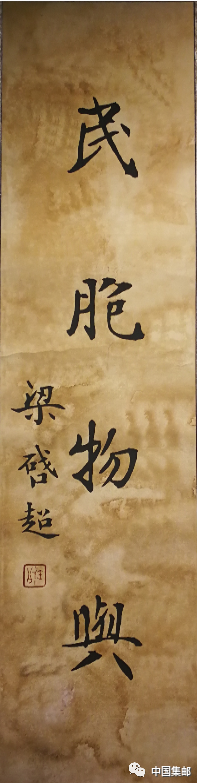 民胞物與
梁啓超
中国集邮